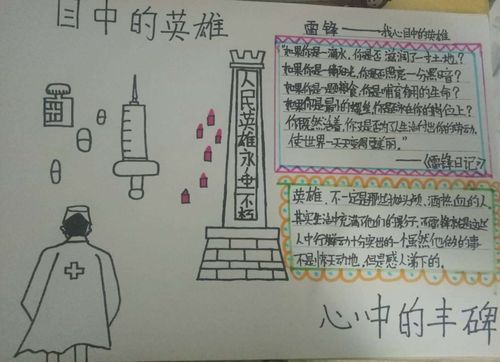 目中的英雄
雷锋——我心目中的英雄
人民英雄永垂不朽
"如果你是一滴水,你是否滋润了一寸土地?
如果你是一缕阳光,你是否照亮一分黑暗?
如果你是一颗粮食,你是否哺育有用的生命?
如果你是最小的螺丝,你是否永在你的岗位上?
使世界一天天变得更美丽。"
——《雷锋日记》
英雄,不一定是那些抛头颅,洒热血的人
其实生活中充满了他们的影子,
人中 一个虽然他做的事
不是惊天动地,但是感人涕下的。
心中的丰碑